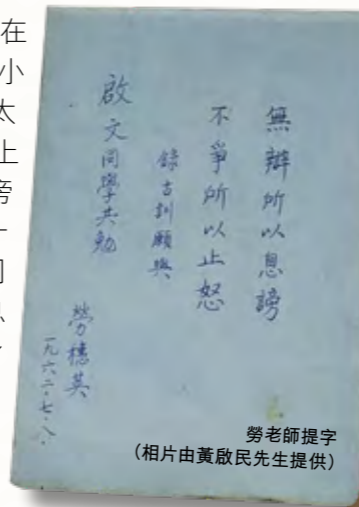 在
小
太
上
無辯所以息謗
不爭所以止怒
錄古訓願與
啟文同學共勉
勞穗英
一九六二·七·八·
勞老師提字
(相片由黃啟民先生提供)